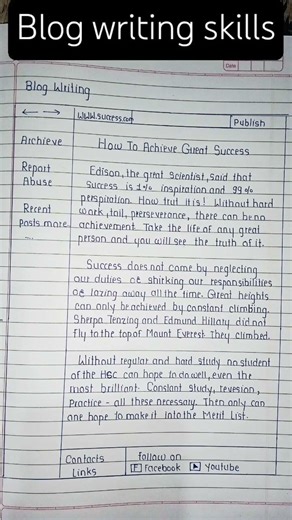 Blog writing skills
Date
Blog Writing
← →
www.success.com
Publish
Archieve
How To Achieve Great Success
Report
Abuse
Recent
Posts more
...
Edison, the great Scientist, said that
success is 1% inspiration and 99%
perspiration. How trut it is! Without hard
work, toil, perseverance, there can be no
achievement. Take the life of any great
person and you will see the truth of it.
Success does not come by neglecting
our duties of shirking our responsibilities
of lazing away all the time. Great heights
can only be achieved by constant climbing.
Sherpa Tenzing and Edmund Hillary did not
fly to the top of Mount Everest. They climbed.
Without regular and hard study no student
of the HSC can hope to do well, even the
most brilliant. Constant study, revesion,
Practice - all these necessary. Then only can
one hope to make it into the Merit List.
Contacts
Links
follow on
F facebook ▶ Youtube